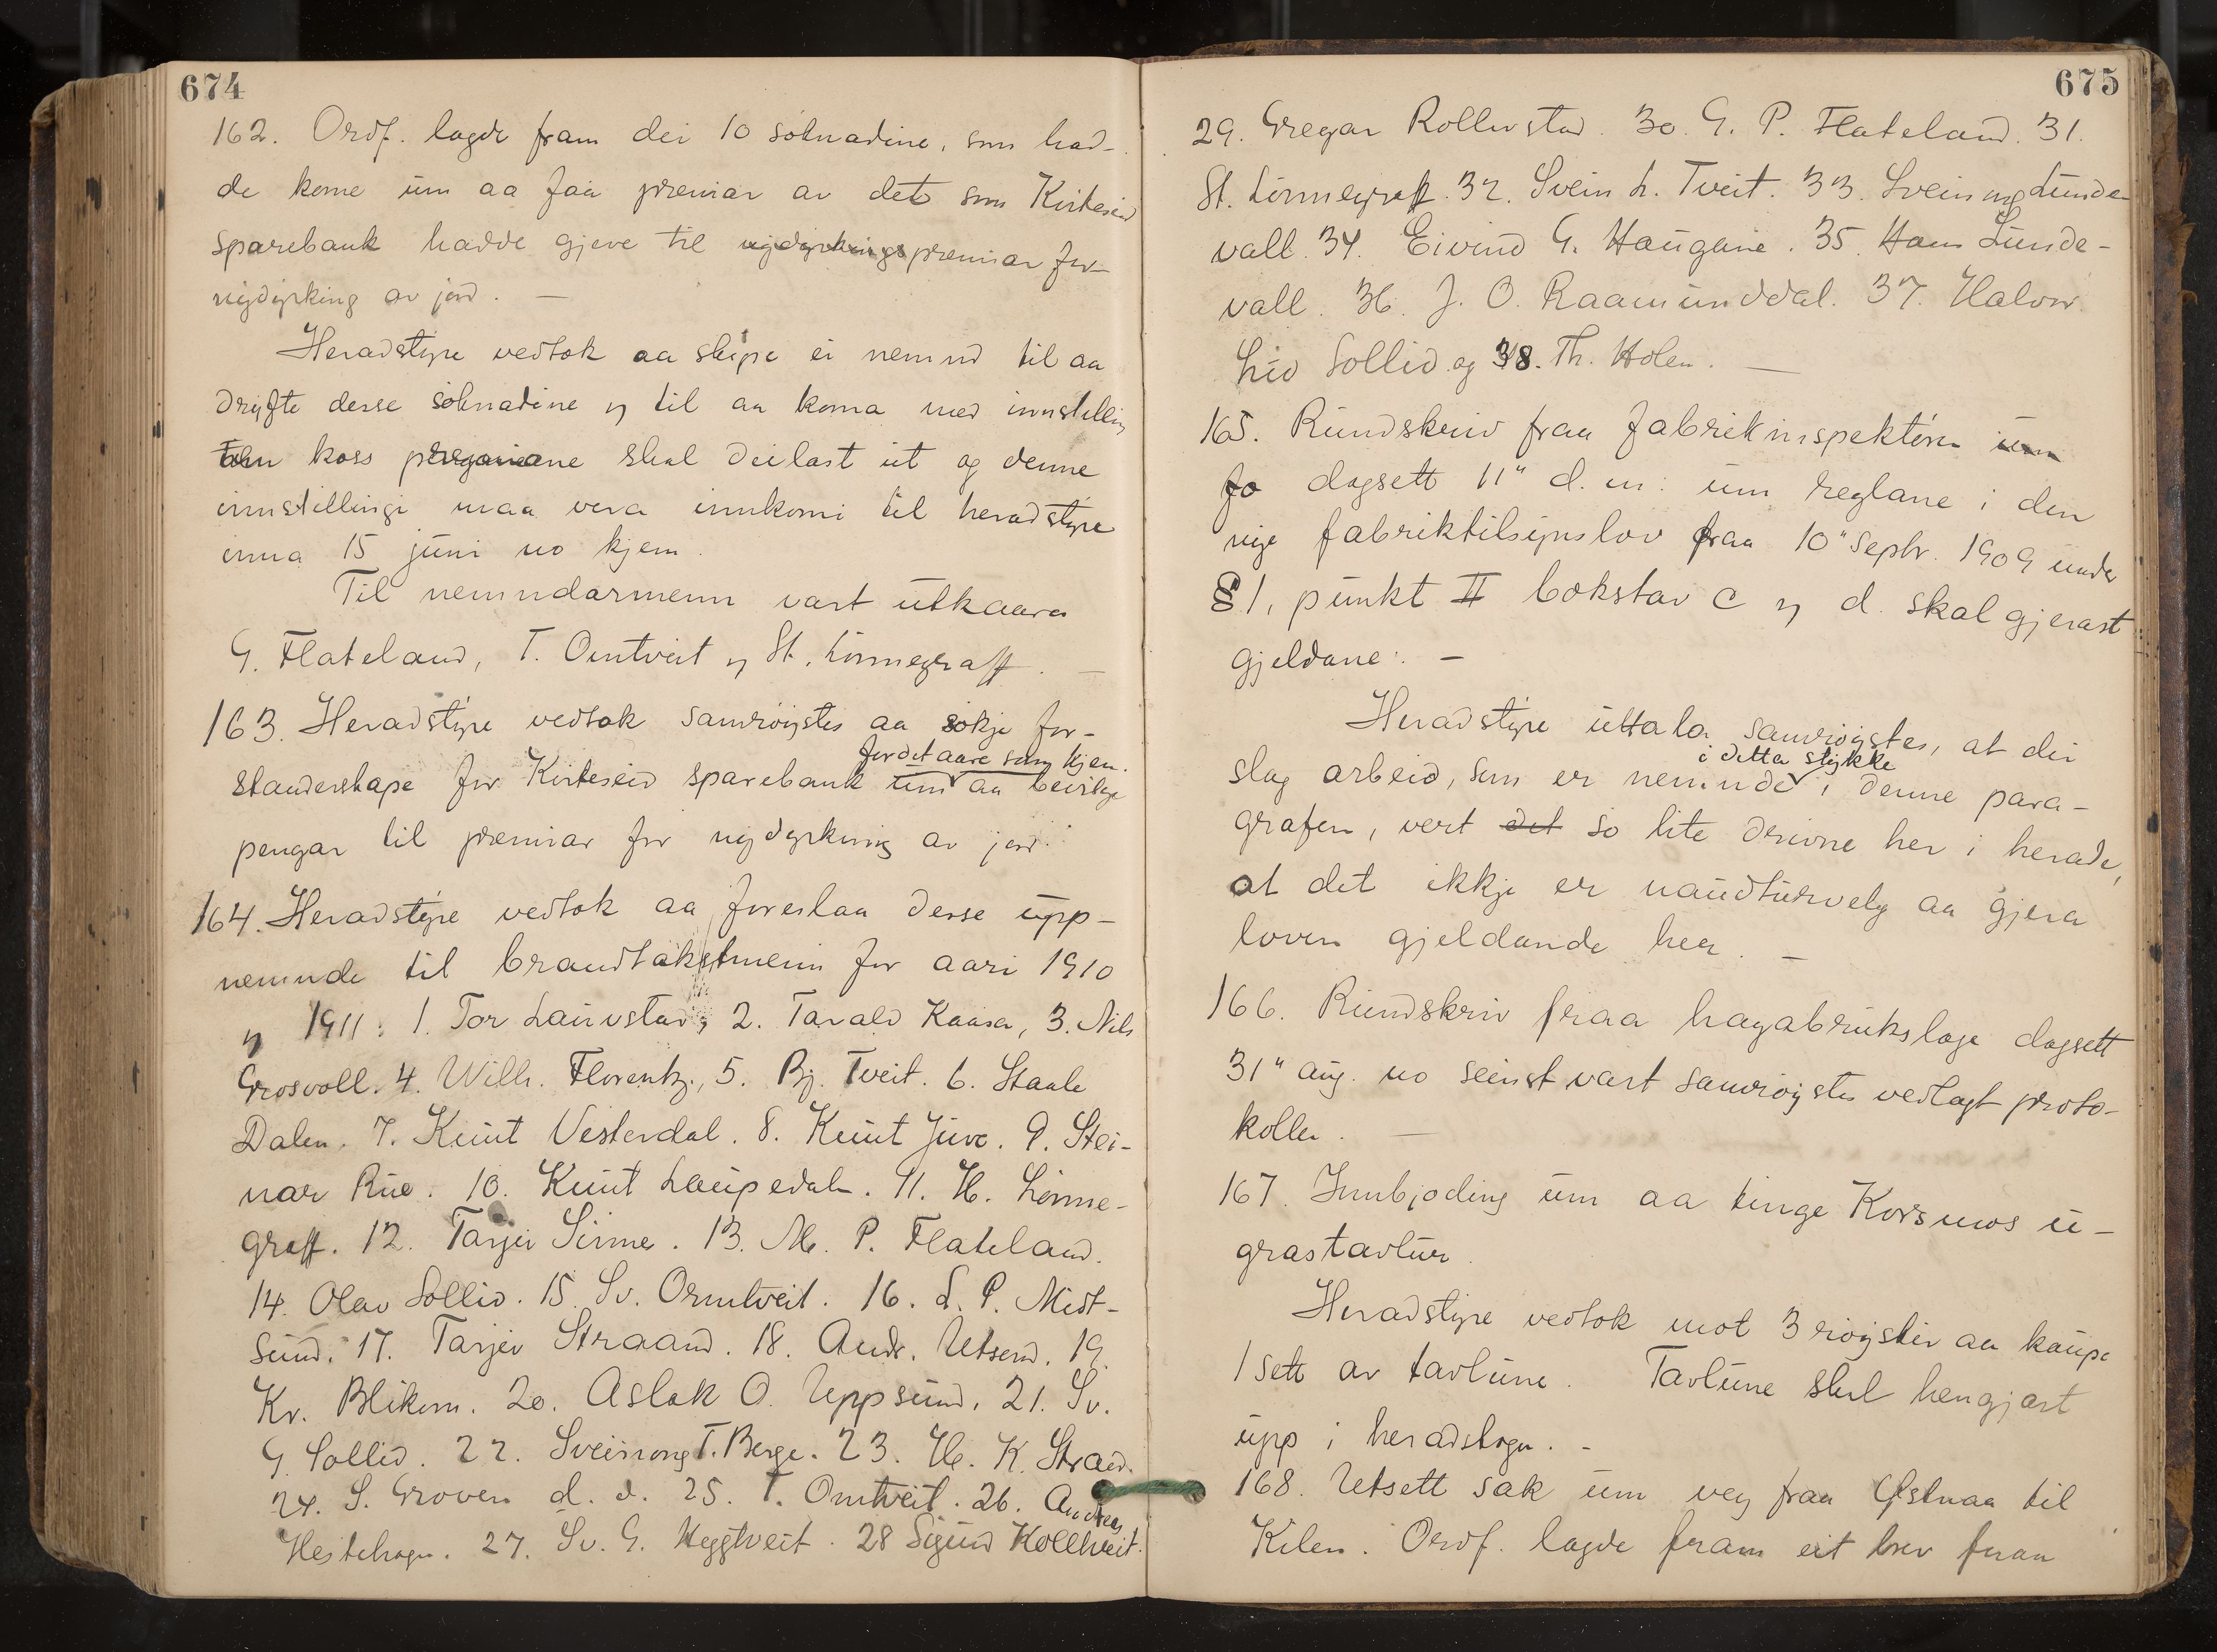 674
162. Ordf. lagde fram dei 10 söknadine, som had-
de kome um aa faa premiar av det som Kviteseid
sparebank hadde gjeve til nydyrkingspremiar for
nydyrking av jord. —
Heradstyre vedtok aa skipa ei nemnd til aa
dryfte desse söknadine og til aa koma med innstelling
um koss premiane skal deilast ut og denne
innstellingi maa vera innkomi til heradstyre
inna 15 juni no kjem.
Til nemndarmenn vart utkaara
G. Flateland, T. Omtveit og St. Lönnegraff. —
163. Heradstyre vedtok samröystes aa sökje for-
for det aare som kjem.
standerskape for Kviteseid sparebank um aa beivilge
pengar til premiar for nydyrking av jord.
164. Heradstyre vedtok aa foreslaa desse upp-
nemnde til brandtakstmenn for aari 1910
og 1911: 1. Tor Lauvstad, 2. Tarald Kaasa, 3. Nils
Grosvoll. 4. Wilh. Florentz., 5. Bj. Tveit. 6. Staale
Dalen. 7. Knut Vesterdal. 8. Knut Juve. 9. Stei-
nar Rue. 10. Knut Laupedal. 11. H. Lönne-
graff. 12. Tarjei Sinnes. 13. M. P. Flateland.
14. Olav Sollid. 15. Sv. Ormtveit. 16. S. P. Midt-
sund. 17. Tarjei Straand. 18. Andr. Utsund. 19.
Kr. Blikom. 20. Aslak O. Uppsund. 21. Sv.
G. Sollid. 22. Sveinung T. Berge. 23. H. K. Strand.
24. S. Groven d. e. 25. T. Omtveit. 26. Andreas
Hestehagen. 27. Sv. G. Heggtveit. 28 Sigurd Kolltveit.
675
29. Gregar Rollevstad. 30. G. P. Flateland. 31.
St. Lönnegraff. 32. Svein L. Tveit. 33. Sveinung Lunde-
vall. 34. Eivind G. Haugane. 35. Hans Lunde-
vall. 36. J. O. Raamunddal. 37. Halvor
Lid Sollid. og 38. Th. Holen. —
165. Rundskriv fraa fabrikinspektören um
fo dagsett 11" d. m. um reglane i den
nye fabriktilsynslov fraa 10" septr. 1909 under
§ 1, punkt II bokstav c og d. skal gjerast
gjeldane. —
Heradstyre uttala samröystes, at dei
i detta stykke
slag arbeid, som er nemnde i denne para-
grafen, vert det so lite drivne her i herade,
at det ikkje er naudturvely aa gjera
loven gjeldande her. —
166. Rundskriv fraa hagabrukslage dagsett
31" aug. no seinst vart samröystes vedlagt proto-
kollen. —
167. Innbjoding um aa tinge Korsmos u-
grastavlur.
Heradstyre vedtok mot 3 röyster aa kaupe
1 sett av tavlune. Tavlune skul hengjast
upp i heradstogu. -
168. Utsett sak um veg fraa Östnaa til
Kilen. Ordf. lagde fram eit brev fraa